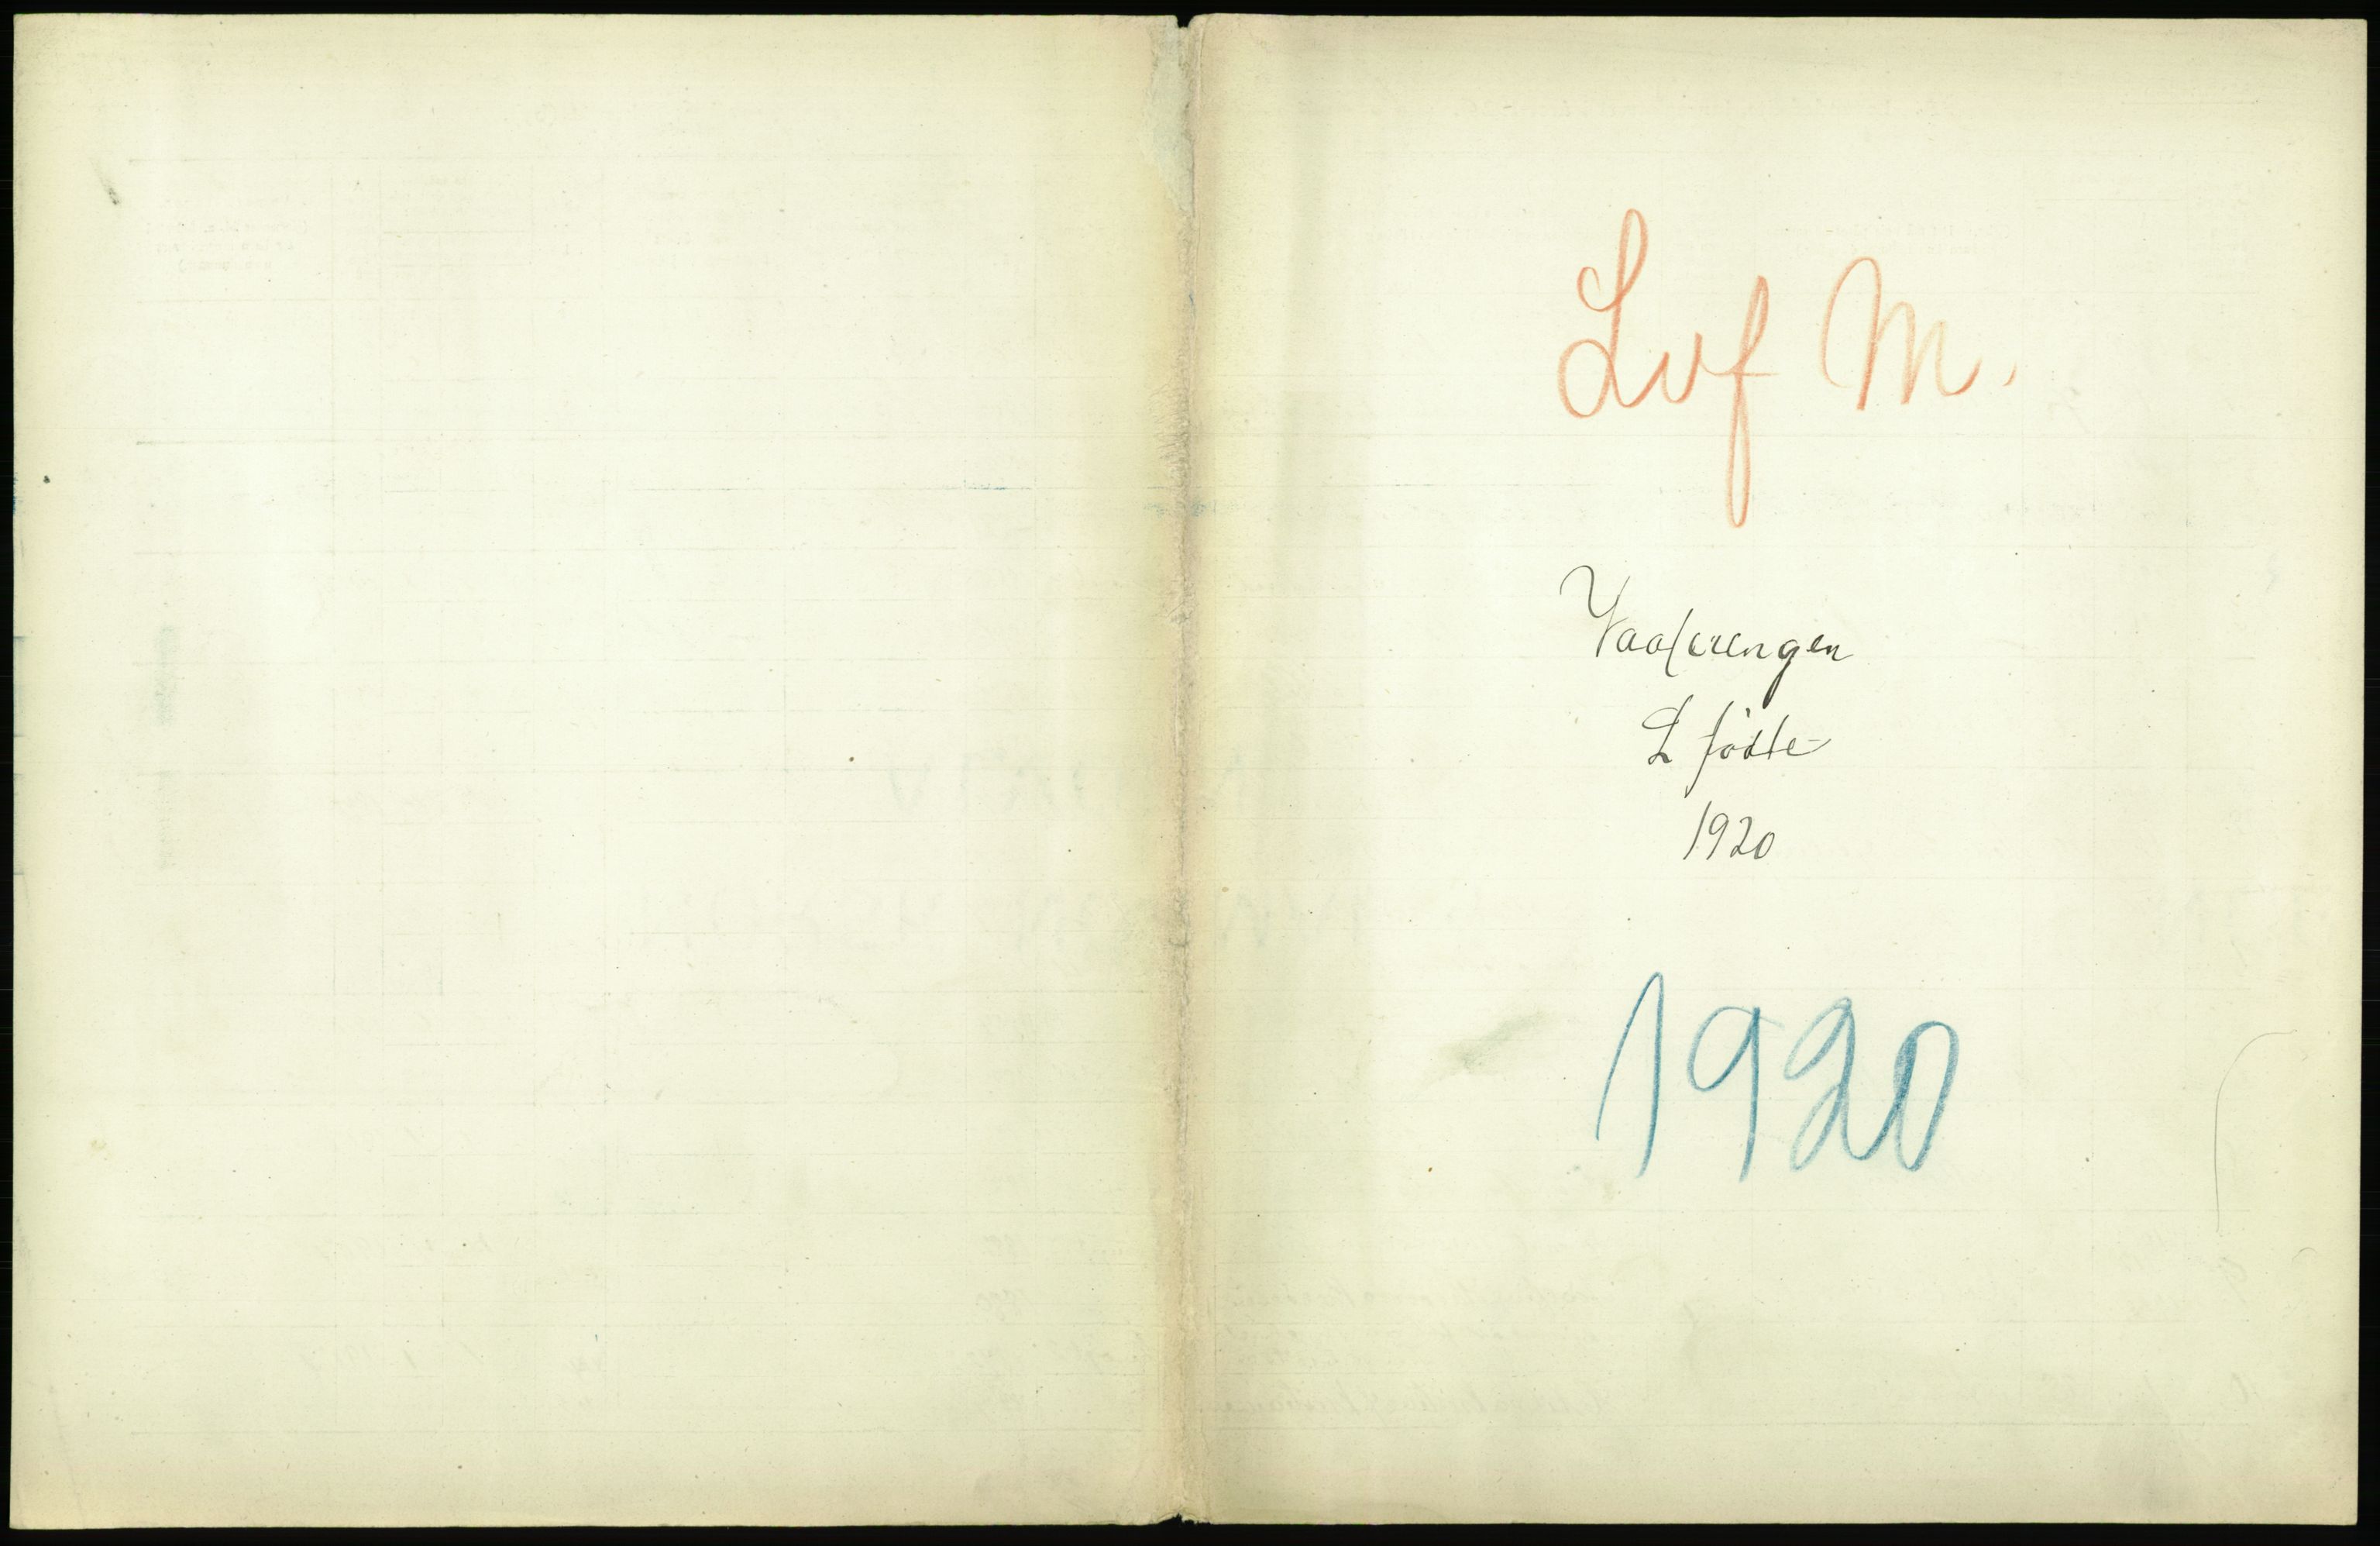 Lvf M.
Vaalerengen
L födte
1920
1920